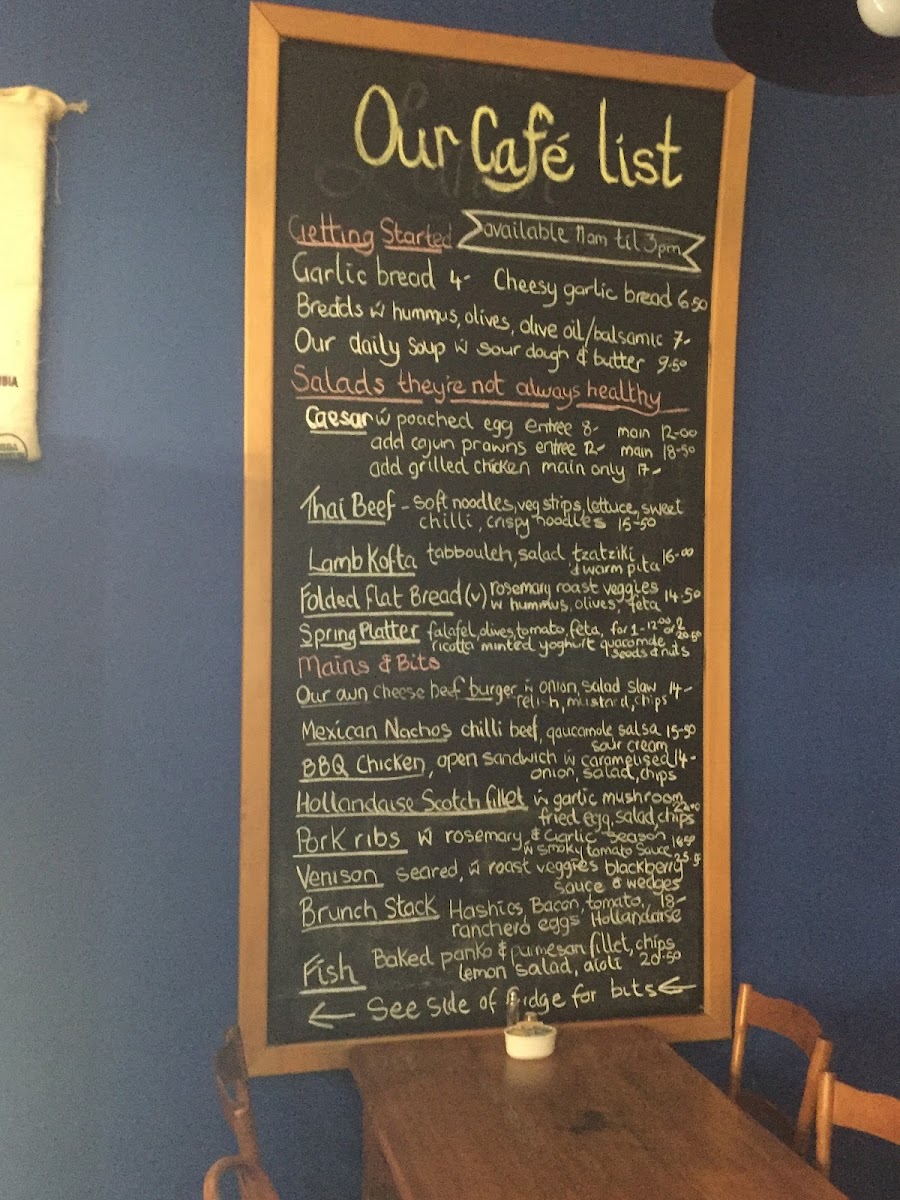 Our Café list
Getting Started available 11am til 3pm
Garlic bread 4- Cheesy garlic bread 6.50
Breads w hummus, olives, olive oil/balsamic 7-
Our daily soup w sour dough & butter 9-50
Salads they're not always healthy
Caesar w poached egg entree 8- main 12-00
add cajun prawns entree 12- main 18-50
add grilled chicken main only 17-
Thai Beef - soft noodles, veg strips, lettuce, sweet
chilli, crispy noodles 15-50
Lamb Kofta tabbouleh, salad tzatziki 16-00
& warm pita
Folded flat Bread (v) rosemary roast veggies 14-50
w hummus, olives, feta
Spring Platter falafel, olives, tomato, feta, for 1-12.00 or 2
ricotta minted yoghurt guacomole 20-50
seeds & nuts
Mains & Bits
Our own cheese beef burger, w onion, salad slaw 14-
relish, mustard, chips
Mexican Nachos chilli beef, gaucamole, salsa 15-50
sour cream
BBQ Chicken, open sandwich w caramelised 14-
onion, salad, chips
Hollandaise Scotch fillet w garlic mushroom
fried egg, salad, chips
Pork ribs w rosemary & Garlic season
w smoky tomato sauce
Venison seared, w roast veggies blackberry
sauce & wedges
Brunch Stack Hashies, Bacon, tomato, 18-
ranchero eggs Hollandaise
Fish Baked panko & parmesan fillet, chips
lemon salad, aioli 20-50
← See side of fridge for bits ←